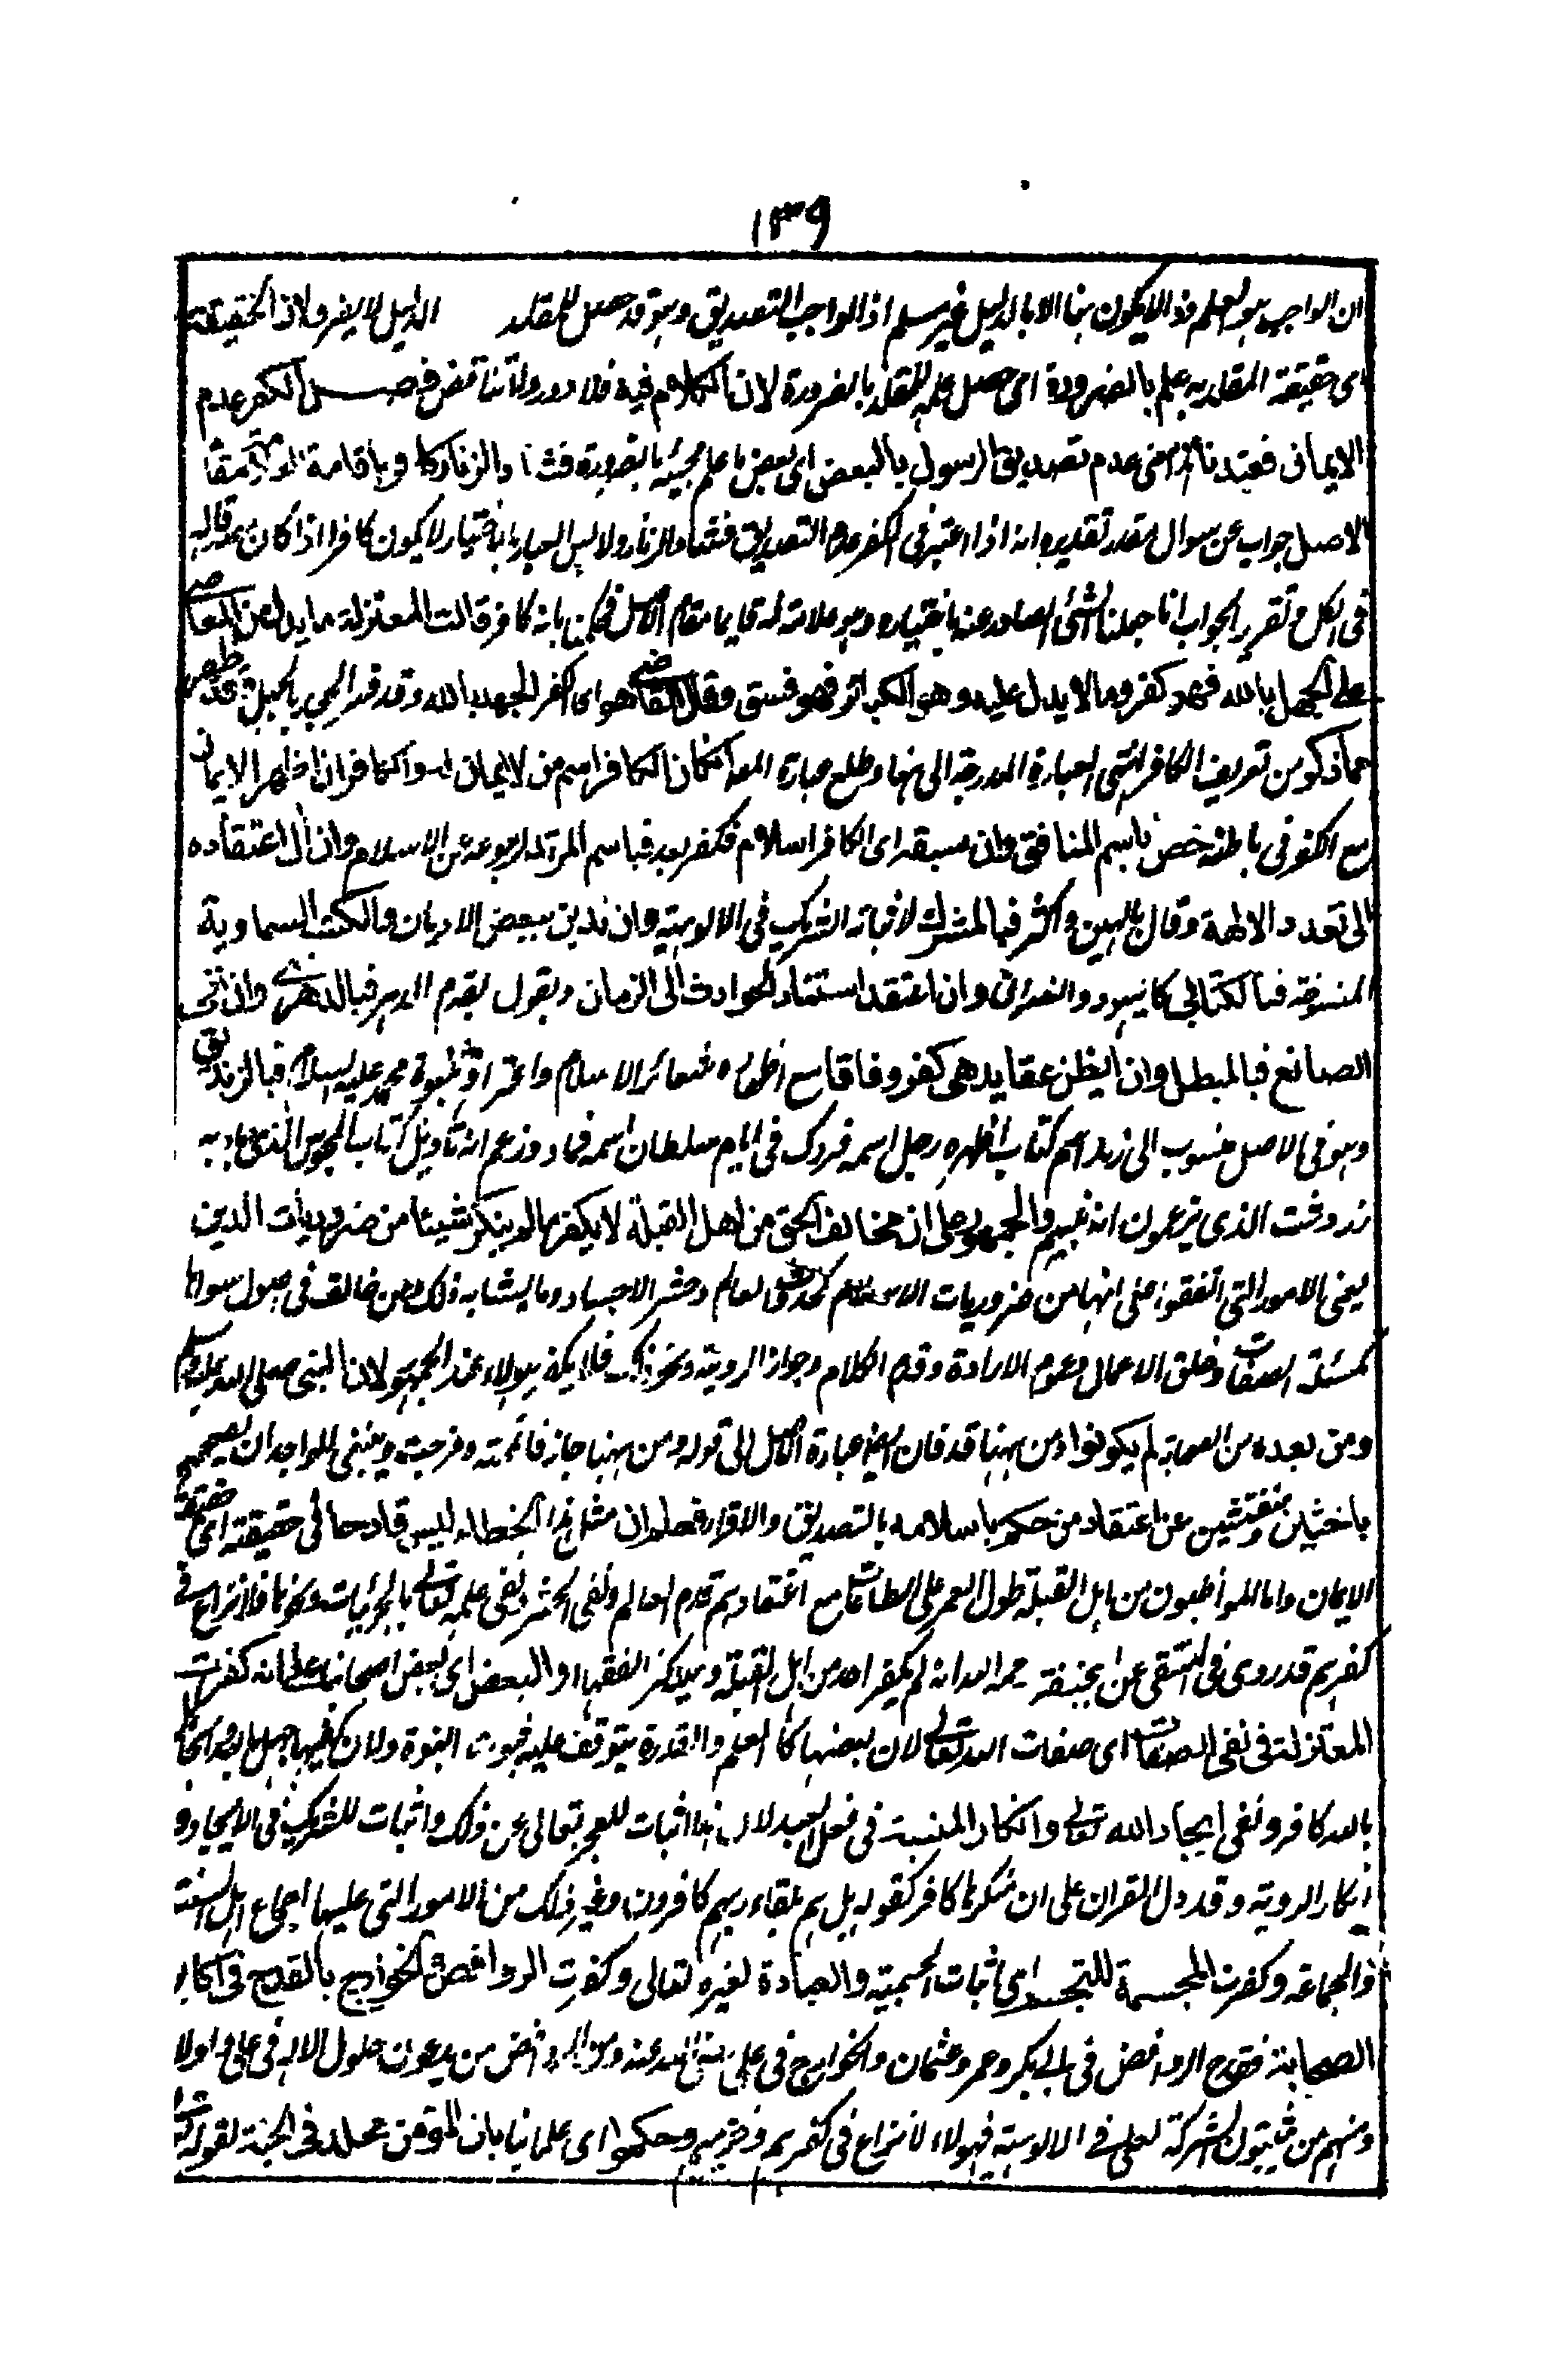 ١٣٩
ان الواجب هو العلم وذا لا يكون منا الا بالدليل غير مسلم اذ الواجب التصديق وهو قد حصل للمقلد الدليل لا يضر ولان الحقيقة
اى حقيقة المقلد به يعلم بالضرورة اى حصل علمه للمقلد بالضرورة لان الكلام فيه فلا دور ولا تناقض فصل الكفر عدم
الايمان فعندنا عدم تصديق الرسول بالبعض اى بعض ما علم مجيئه بالضرورة فشاد الزنار كا وباقامة مقا
الاصل جواب عن سوال مقدر تقديره انه اذا اعتبر فى الكفر عدم التصديق فشاد الزنار ولابس الغيار باختيار لا يكون كافرا اذا كان
فى الكل وتقرير الجواب انا جعلنا الشئ الصادر عنه باختياره وهو علامة له قايما مقام الاصل بانه كافر قالت المعتزلة ما يدل من المعا
على الجهل بالله فهو كفر وما لا يدل عليه وهى الكبائر فهو فسق وقال القا هو اى الكفر الجهد بالله وقد
عما ذكر من تعريف الكافر العبارة المدرجة الى عبارة فكان الكافر اسم من لا ايمان له والكافر ان اظهر الايمان
مع الكفر فى باطنه خص باسم المنافق وان سبقه اى الكافر اسلام فكفر بعد فباسم المرتد لرجوعه عن الاسلام وان ال اعتقاده
الى تعدد الالهة وقال بالهين واكثر فبالمشرك لاثباته الشريك فى الالوهية وان تدين ببعض الاديان والكتب السماوية
المنسوخة فبالكتابى كاليهود والنصرانى وان اعتقد استناد الحوادث الى الزمان ويقول بقدم الدهر فبالدهرى وان
الصانع فبالمبطل وان ابطن عقايد هى كفر وفاقا مع اظهاره شعائر الاسلام واعترافه بنبوة محمد عليه السلام فبالزنديق
وهو فى الاصل منسوب الى زند اسم كتاب اظهره رجل اسمه فى ايام سلطان اسمه وزعم انه تاويل كتاب المجوس الذى جاء به
زردوشت الذى يزعمون انه نبيهم والجمهور على ان مخالف الحق من اهل القبلة لا يكفر ما لم ينكر شيئا من ضروريات الدين
يعنى الامور التى اتفقوا على انها من ضروريات الاسلام كحدوث العالم وحشر الاجساد وما يشابه ذلك ومن خالف فى اصول سواها
كمسئلة الصفات وخلق الاعمال وعموم الارادة وقدم الكلام وجواز الروية ونحو ذلك فلا يكفر هولاء عند الجمهور لان النبى صلى الله عليه وسلم
ومن بعده من الصحابة لم يكونوا من ههنا قد فان عبارة الاصل الى قوله ومن ههنا جاز
باحثين مفتشين عن اعتقاد من حكم باسلامه بالتصديق والاقرار فعلم ان مثل هذا الخطاء ليس قادحا فى حقيقة اى
الايمان واما المواظبون من اهل القبلة طول العمر على الطاعات مع اعتقادهم قدم العالم ونفى الحشر ونفى علمه تعالى بالجزئيات ونحوها فلا نزاع فى
كفرهم قد روى فى المنتقى عن ابى حنيفة رحمه الله انه لم يكفر احد من اهل القبلة وعليه اكثر الفقهاء والبعض اى بعض اصحابنا على انه كفرت
المعتزلة فى نفى الصفات اى صفات الله تعالى لان بعضها كالعلم والقدرة يتوقف عليه ثبوت النبوة ولان
بالله كافر ونفى ايجاد الله تعالى وانكار المشية فى فعل العبد لان هذا اثبات للعجز تعالى عن ذلك واثبات للشريك فى الايجاد و
انكار الروية وقد دل القران على ان منكرها كافر كقوله بل هم بلقاء ربهم كافرون وغير ذلك من الامور التى عليها اجماع اهل السنة
والجماعة وكفرت المجسمة للتجسد اى اثبات الجسمية والعبادة لغيره تعالى وكفرت الروافض والخوارج بالقدح فى اكابر
الصحابة فقدح الروافض فى ابى بكر وعمر وعثمان والخوارج فى على رضى الله عنه ومن الروافض من يدعون حلول الاله فى على واولا
ومنهم من يثبتون الشركة لعلى فى الالوهية فهولاء لا نزاع فى كفرهم وحكموا اى علمائنا بان المؤمن مخلد فى الجنة لقوله تعالى